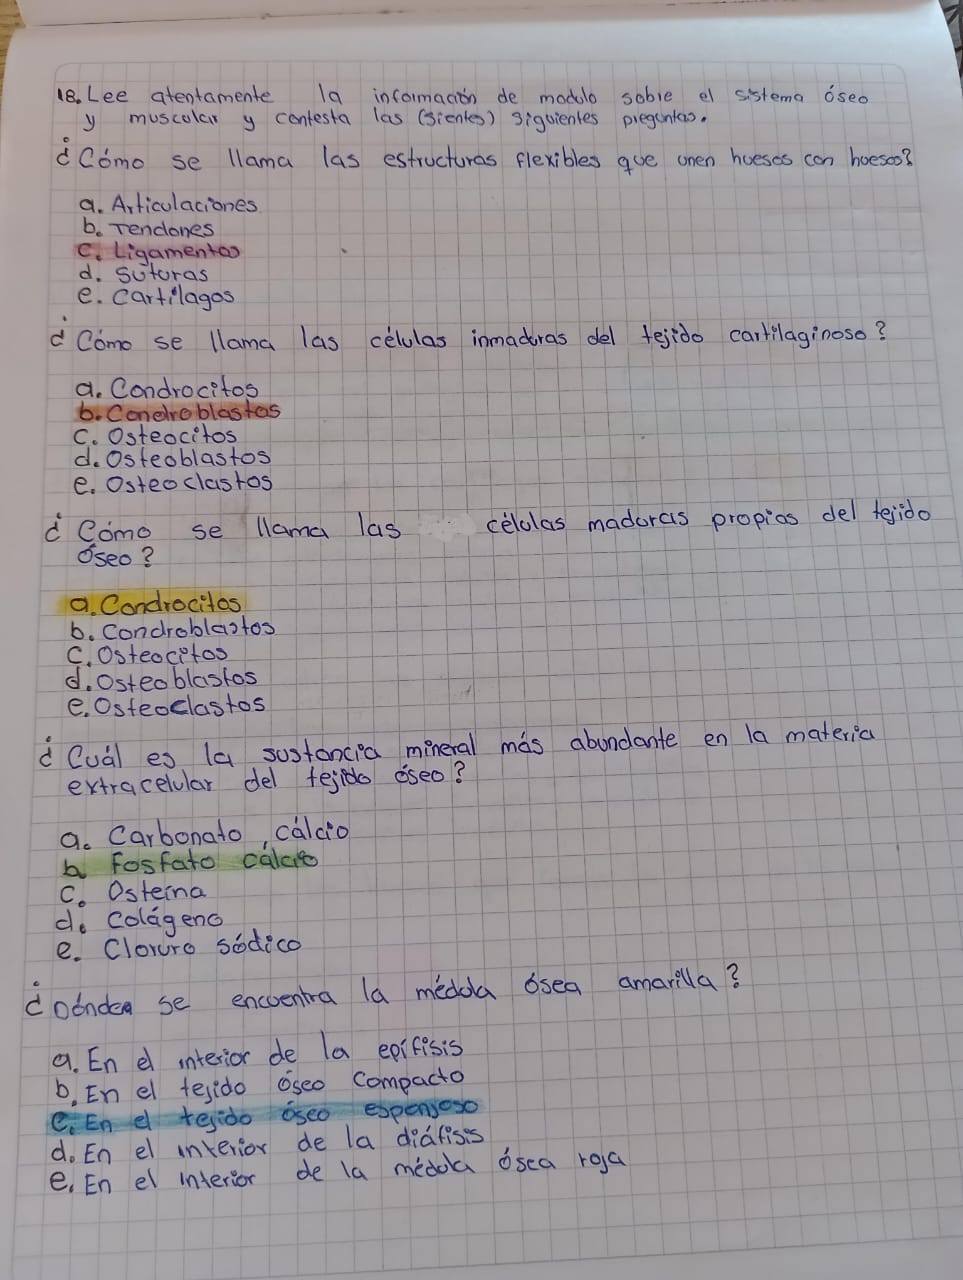 18. Lee atentamente la información de modulo sobre el sistema óseo
y muscular y contesta las (sientes) siguientes preguntas.
¿Cómo se llama las estructuras flexibles que unen huesos con huesos?
a. Articulaciones
b. Tendones
c. Ligamentos
d. Suturas
e. Cartílagos
¿Cómo se llama las células inmaduras del tejido cartilaginoso?
a. Condrocitos
b. Condroblastos
c. Osteocitos
d. Osteoblastos
e. Osteoclastos
¿Cómo se llama las células maduras propias del tejido
óseo?
a. Condrocitos
b. Condroblastos
c. Osteocitos
d. Osteoblastos
e. Osteoclastos
¿Cuál es la sustancia mineral más abundante en la materia
extracelular del tejido óseo?
a. Carbonato cálcio
b Fosfato cálcio
c. Osteína
d. Colágeno
e. Cloruro sódico
¿Dónden se encuentra la médula ósea amarilla?
a. En el interior de la epífisis
b. En el tejido óseo compacto
c. En el tejido óseo esponjoso
d. En el interior de la diáfisis
e. En el interior de la médula ósea roja